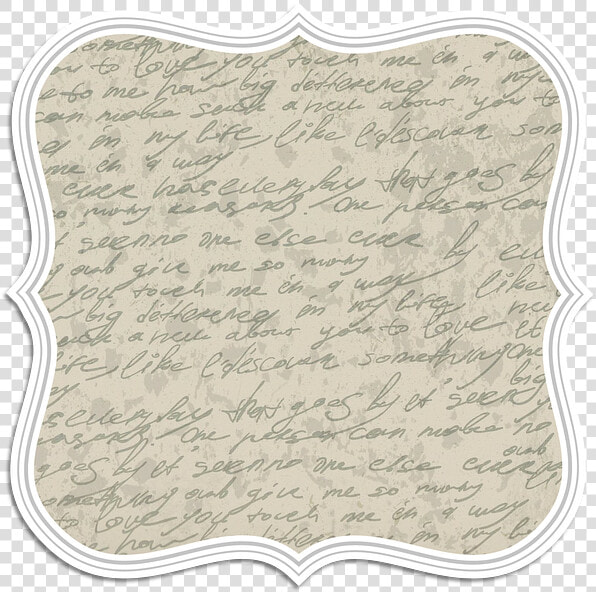 something
to love you touch me in a way
to me how big difference in my
can make such a new about you to
in my life like I discover som
me in a way
ever has everyday that goes by
so many reasons. One person can
it seems no one else ever by eve
and give me so many
you touch me in a way like
big difference in my life
such a new about you to love it
life like I discover something one
big
everyday that goes by it seems
reasons. One person can make no
goes by it seems no one else ever
something and give me so many
to love you touch me in a way
how big difference in my